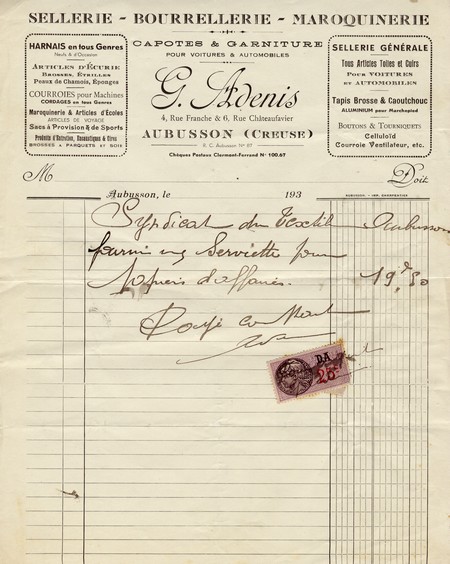 SELLERIE - BOURRELLERIE - MAROQUINERIE
HARNAIS en tous Genres
Neufs & d'Occasion
ARTICLES D'ÉCURIE
BROSSES, ÉTRILLES
Peaux de Chamois, Éponges
COURROIES pour Machines
CORDAGES en tous Genres
Maroquinerie & Articles d'Écoles
ARTICLES DE VOYAGE
Sacs à Provisions & de Sports
Produits d'Entretien, Caoutchoucs & Cires
BROSSES A PARQUETS ET SOIE
CAPOTES & GARNITURE
POUR VOITURES & AUTOMOBILES
G. Adenis
4, Rue Franche & 6, Rue Châteaufavier
AUBUSSON (CREUSE)
R. C. Aubusson N° 87
Chèques Postaux Clermont-Ferrand N° 100.67
SELLERIE GÉNÉRALE
Tous Articles Toiles et Cuirs
POUR VOITURES
ET AUTOMOBILES
Tapis Brosse & Caoutchouc
ALUMINIUM pour Marchepied
BOUTONS & TOURNIQUETS
Celluloïd
Courroie Ventilateur, etc.
M
Doit
Aubusson, le 193
AUBUSSON. - IMP.
Syndicat du Textile Aubusson
fourni une Serviette pour
papiers d'affaires. 19f 50
Payé comptant
DA
25c